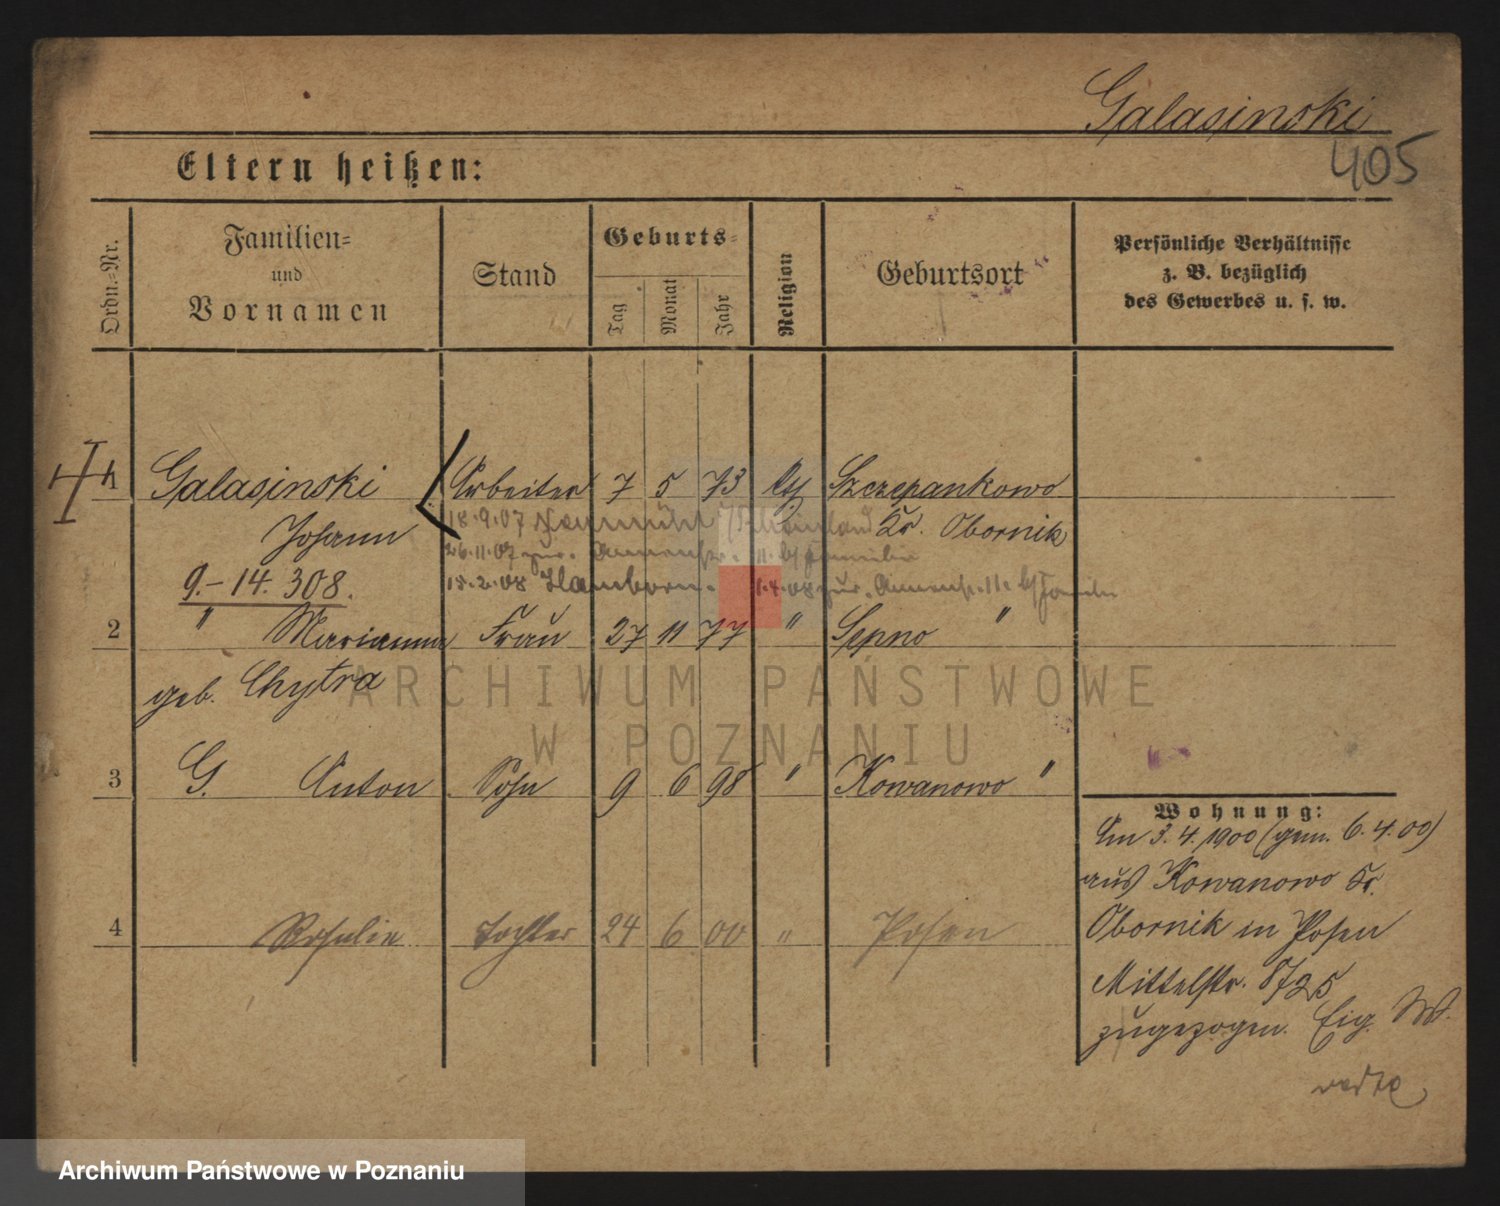 Galasinski
405
Eltern heißen:
Ordn.=Nr.
Familien=
und
Vornamen
Stand
Geburts=
Tag
Monat
Jahr
Religion
Geburtsort
Persönliche Verhältnisse
z. B. bezüglich
des Gewerbes u. s. w.
1 Galasinski Arbeiter 7 5 73 Szczepankowo
Johann 18.9.07 Kr. Obornik
26.11.07 zur.
9.-14.308. 15.2.08 Hamborn. 1.4.08 zur.
2 " Marianna Frau 27 11 77 " Sepno "
geb. Chytra
3 G. Anton Sohn 9 6 98 " Kowanowo "
Wohnung:
Am 3.4.1900 (gem. 6.4.00)
aus Kowanowo Kr.
4 Tochter 24 6 00 " Posen
Obornik in Posen
Mittelstr.
zugezogen. Eig. W.
ARCHIWUM PAŃSTWOWE
W POZNANIU
Archiwum Państwowe w Poznaniu